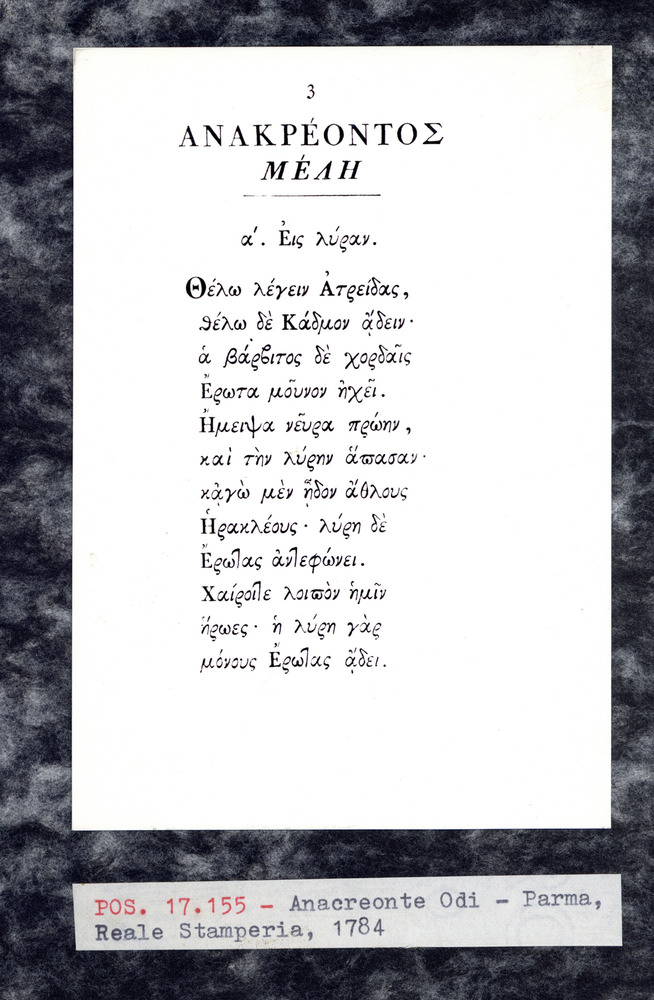 3
ΑΝΑΚΡΈΟΝΤΟΣ
ΜΈΛΗ
α΄. Ἐις λύραν.
Θέλω λέγειν Ἀτρείδας,
θέλω δὲ Κάδμον ᾄδειν·
ἁ βάρβιτος δὲ χορδαῖς
Ἔρωτα μοῦνον ἠχεῖ.
Ἤμειψα νεῦρα πρώην,
καὶ τὴν λύρην ἅπασαν·
κᾀγὼ μὲν ᾖδον ἄθλους
Ἡρακλέους· λύρη δὲ
Ἔρωτας ἀντεφώνει.
Χαίροιτε λοιπὸν ἡμῖν
ἥρωες· ἡ λύρη γὰρ
μόνους Ἔρωτας ᾄδει.
POS. 17.155 - Anacreonte Odi - Parma,
Reale Stamperia, 1784